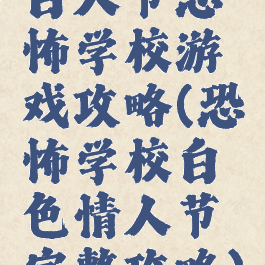 白人节恐
怖学校游
戏攻略(恐
怖学校白
色情人节
完整攻略)